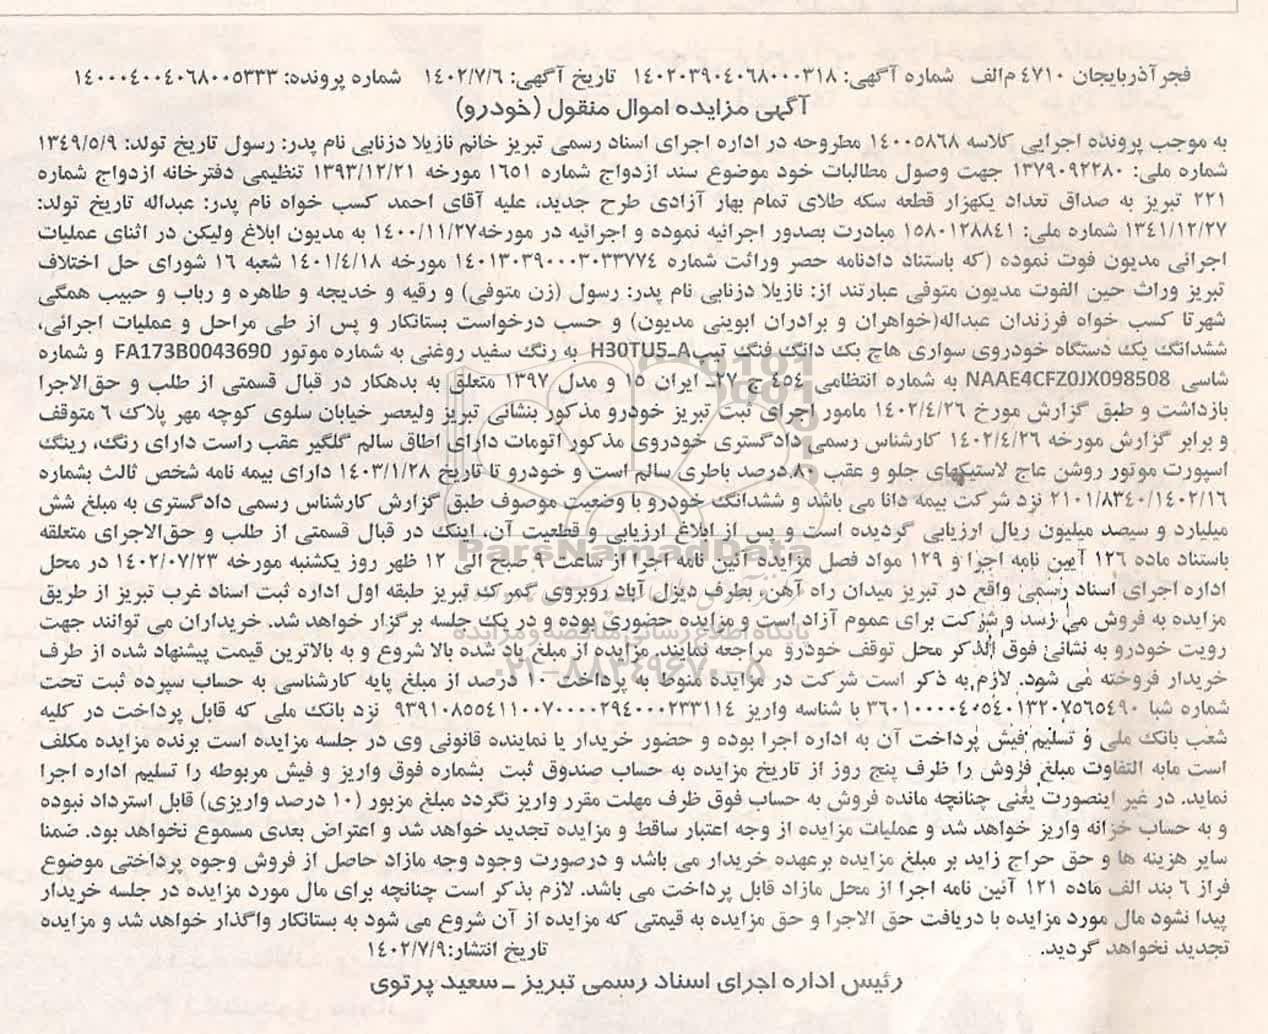 فجر آذربایجان ٤٧١٠ م/الف شماره آگهی: ١٤٠٢٠٣٩٠٤٠٦٨٠٠٠٣١٨ تاریخ آگهی: ١٤٠٢/٧/٦ شماره پرونده: ١٤٠٠٠٤٠٠٤٠٦٨٠٠٥٣٣٣
آگهی مزایده اموال منقول (خودرو)
به موجب پرونده اجرایی کلاسه ١٤٠٠٥٨٦٨ مطروحه در اداره اجرای اسناد رسمی تبریز خانم نازیلا دزنابی نام پدر: رسول تاریخ تولد: ١٣٤٩/٥/٩
شماره ملی: ١٣٧٩٠٩٢٢٨٠ جهت وصول مطالبات خود موضوع سند ازدواج شماره ١٦٥١ مورخه ١٣٩٣/١٢/٢١ تنظیمی دفترخانه ازدواج شماره
٢٢١ تبریز به صداق تعداد یکهزار قطعه سکه طلای تمام بهار آزادی طرح جدید، علیه آقای احمد کسب خواه نام پدر: عبداله تاریخ تولد:
١٣٤١/١٢/٢٧ شماره ملی: ١٥٨٠١٢٨٨٤١ مبادرت بصدور اجرائیه نموده و اجرائیه در مورخه١٤٠٠/١١/٢٧ به مدیون ابلاغ ولیکن در اثنای عملیات
اجرائی مدیون فوت نموده (که باستناد دادنامه حصر وراثت شماره ١٤٠١٣٠٣٩٠٠٠٣٠٣٣٧٧٤ مورخه ١٤٠١/٤/١٨ شعبه ١٦ شورای حل اختلاف
تبریز وراث حین الفوت مدیون متوفی عبارتند از: نازیلا دزنابی نام پدر: رسول (زن متوفی) و رقیه و خدیجه و طاهره و رباب و حبیب همگی
شهرتا کسب خواه فرزندان عبداله(خواهران و برادران ابوینی مدیون) و حسب درخواست بستانکار و پس از طی مراحل و عملیات اجرائی،
ششدانگ یک دستگاه خودروی سواری هاچ بک دانگ فنگ تیپH30TU5_A به رنگ سفید روغنی به شماره موتور FA173B0043690 و شماره
شاسی NAAE4CFZ0JX098508 به شماره انتظامی ٤٥٤ ج ٢٧ـ ایران ١٥ و مدل ١٣٩٧ متعلق به بدهکار در قبال قسمتی از طلب و حق‌الاجرا
بازداشت و طبق گزارش مورخ ١٤٠٢/٤/٢٦ مامور اجرای ثبت تبریز خودرو مذکور بنشانی تبریز ولیعصر خیابان سلوی کوچه مهر پلاک ٦ متوقف
و برابر گزارش مورخه ١٤٠٢/٤/٢٦ کارشناس رسمی دادگستری خودروی مذکور اتومات دارای اطاق سالم گلگیر عقب راست دارای رنگ، رینگ
اسپورت موتور روشن عاج لاستیکهای جلو و عقب ٨٠درصد باطری سالم است و خودرو تا تاریخ ١٤٠٣/١/٢٨ دارای بیمه نامه شخص ثالث بشماره
٢١٠١/٨٣٤٠/١٤٠٢/١٦ نزد شرکت بیمه دانا می باشد و ششدانگ خودرو با وضعیت موصوف طبق گزارش کارشناس رسمی دادگستری به مبلغ شش
میلیارد و سیصد میلیون ریال ارزیابی گردیده است و پس از ابلاغ ارزیابی و قطعیت آن، اینک در قبال قسمتی از طلب و حق‌الاجرای متعلقه
باستناد ماده ١٢٦ آیین نامه اجرا و ١٢٩ مواد فصل مزایده آئین نامه اجرا از ساعت ٩ صبح الی ١٢ ظهر روز یکشنبه مورخه ١٤٠٢/٠٧/٢٣ در محل
اداره اجرای اسناد رسمی واقع در تبریز میدان راه آهن، بطرف دیزل آباد روبروی گمرک تبریز طبقه اول اداره ثبت اسناد غرب تبریز از طریق
مزایده به فروش می رسد و شرکت برای عموم آزاد است و مزایده حضوری بوده و در یک جلسه برگزار خواهد شد. خریداران می توانند جهت
رویت خودرو به نشانی فوق الذکر محل توقف خودرو مراجعه نمایند. مزایده از مبلغ یاد شده بالا شروع و به بالاترین قیمت پیشنهاد شده از طرف
خریدار فروخته می شود. لازم به ذکر است شرکت در مزایده منوط به پرداخت ١٠ درصد از مبلغ پایه کارشناسی به حساب سپرده ثبت تحت
شماره شبا ٣٦٠١٠٠٠٠٤٠٥٤٠١٣٢٠٧٥٦٥٤٩٠ با شناسه واریز ٩٣٩١٠٨٥٥٤١١٠٠٧٠٠٠٠٢٩٤٠٠٠٢٣٣١١٤ نزد بانک ملی که قابل پرداخت در کلیه
شعب بانک ملی و تسلیم فیش پرداخت آن به اداره اجرا بوده و حضور خریدار یا نماینده قانونی وی در جلسه مزایده است برنده مزایده مکلف
است مابه التفاوت مبلغ فروش را ظرف پنج روز از تاریخ مزایده به حساب صندوق ثبت بشماره فوق واریز و فیش مربوطه را تسلیم اداره اجرا
نماید. در غیر اینصورت یعنی چنانچه مانده فروش به حساب فوق ظرف مهلت مقرر واریز نگردد مبلغ مزبور (١٠ درصد واریزی) قابل استرداد نبوده
و به حساب خزانه واریز خواهد شد و عملیات مزایده از وجه اعتبار ساقط و مزایده تجدید خواهد شد و اعتراض بعدی مسموع نخواهد بود. ضمنا
سایر هزینه ها و حق حراج زاید بر مبلغ مزایده برعهده خریدار می باشد و درصورت وجود وجه مازاد حاصل از فروش وجوه پرداختی موضوع
فراز ٦ بند الف ماده ١٢١ آئین نامه اجرا از محل مازاد قابل پرداخت می باشد. لازم بذکر است چنانچه برای مال مورد مزایده در جلسه خریدار
پیدا نشود مال مورد مزایده با دریافت حق الاجرا و حق مزایده به قیمتی که مزایده از آن شروع می شود به بستانکار واگذار خواهد شد و مزایده
تجدید نخواهد گردید. تاریخ انتشار:١٤٠٢/٧/٩
رئیس اداره اجرای اسناد رسمی تبریز ـ سعید پرتوی
ParsNamadData
پایگاه اطلاع رسانی مناقصه و مزایده
٠٢١-٨٨٣٤٩٦٧٠-٥